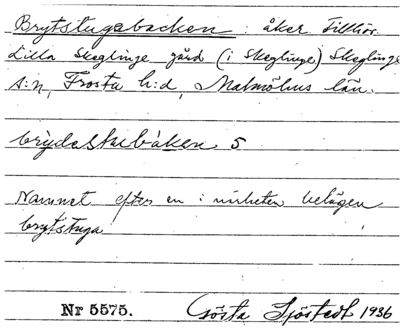 Brytstugebacken : åker tillhör.
Lilla Skeglinge gård (i Skeglinge) Skeglinge
s:n, Frosta h:d, Malmöhus län.
brydestuebáken s
Namnet efter en i närheten belägen
brytstuga
Nr 5575. Gösta Sjöstedt 1936